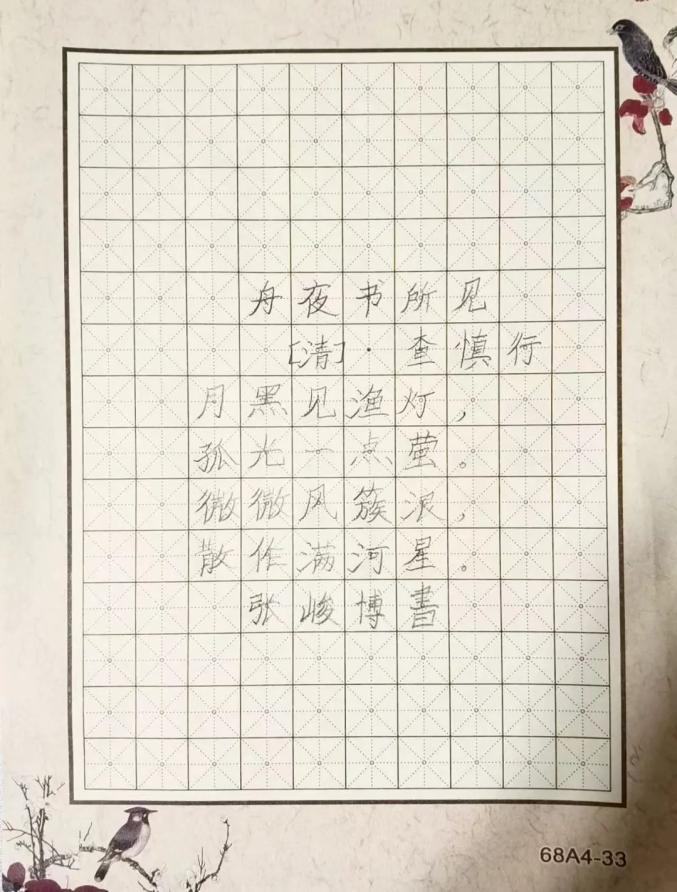 舟夜书所见
[清]·查慎行
月黑见渔灯，
孤光一点萤。
微微风簇浪，
散作满河星。
张峻博書
68A4-33